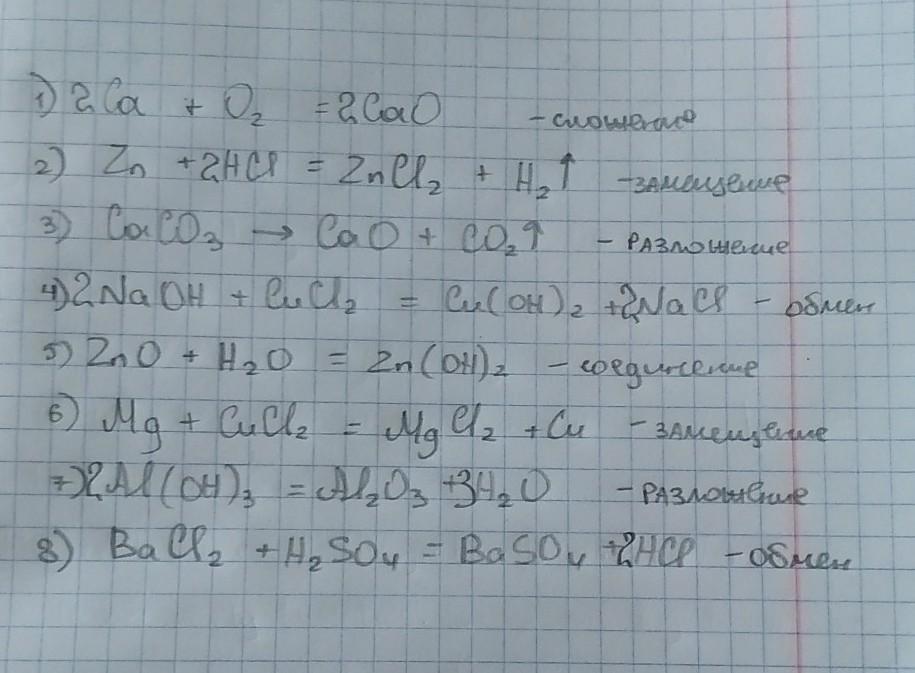 1) 2Ca + O₂ = 2CaO - сложение
2) Zn + 2HCl = ZnCl₂ + H₂↑ - замещение
3) CaCO₃ → CaO + CO₂↑ - разложение
4) 2NaOH + CuCl₂ = Cu(OH)₂ + 2NaCl - обмен
5) ZnO + H₂O = Zn(OH)₂ - соединение
6) Mg + CuCl₂ = MgCl₂ + Cu - замещение
7) 2Al(OH)₃ = Al₂O₃ + 3H₂O - разложение
8) BaCl₂ + H₂SO₄ = BaSO₄ + 2HCl - обмен